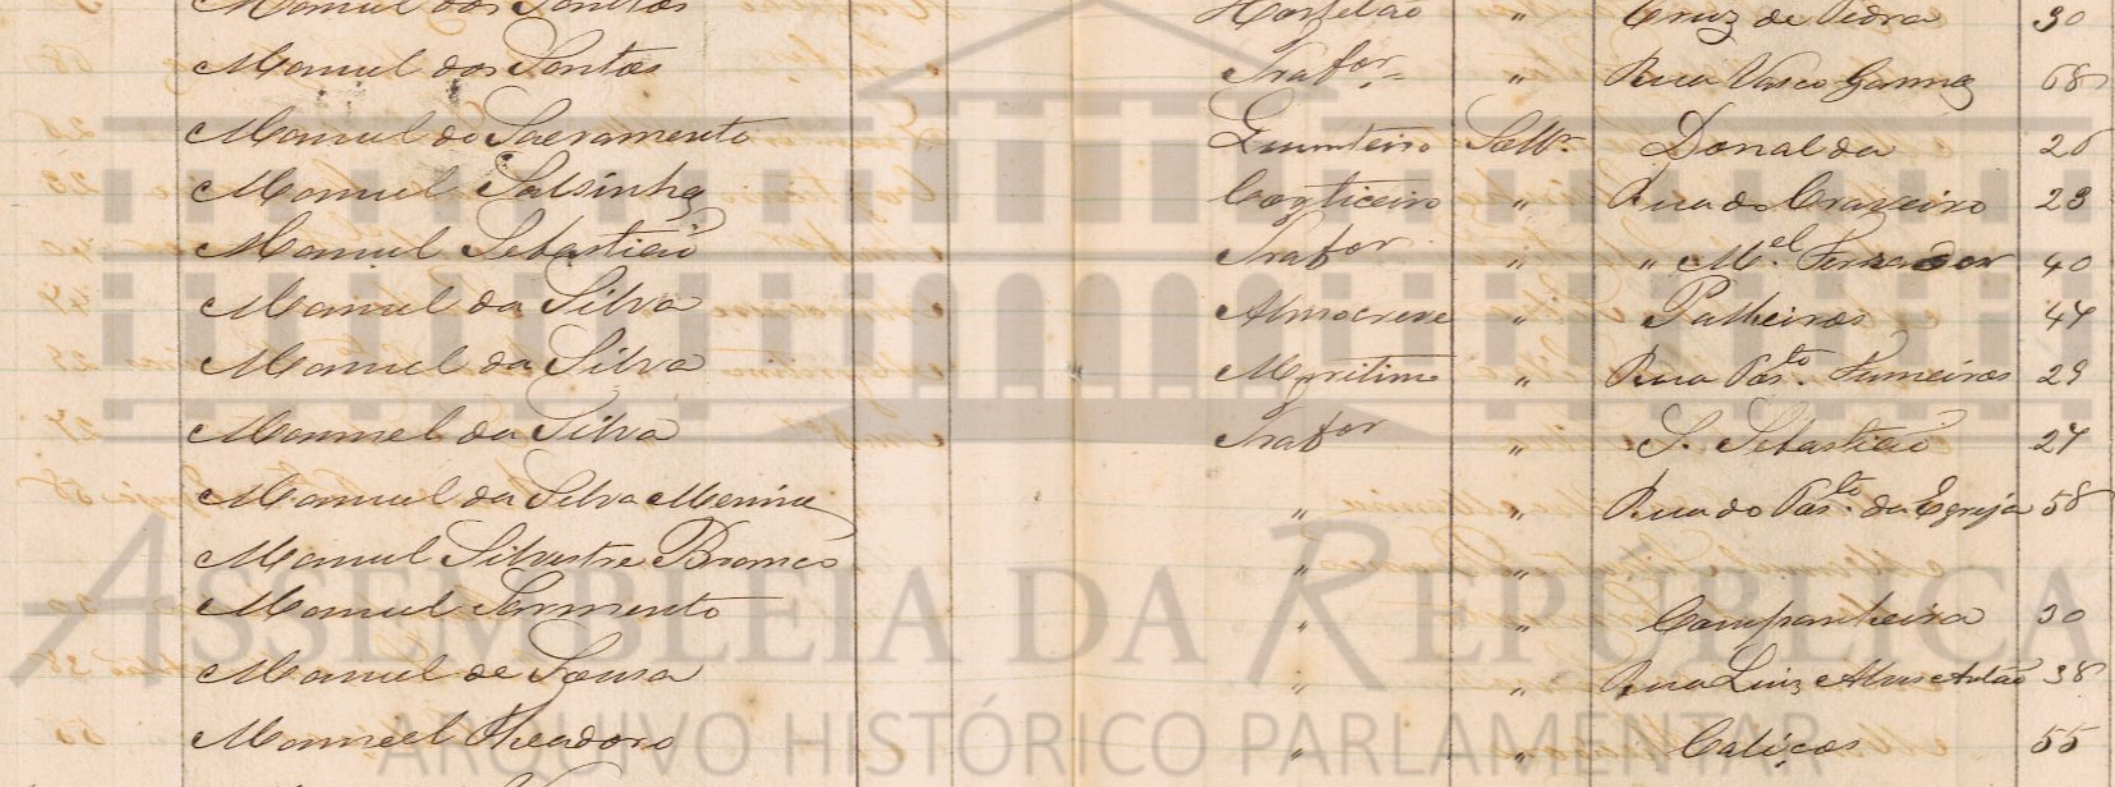 Manuel dos Santos Hortelão " Cruz de Pedra 30
Manuel dos Santos Trabor. " Rua Vasco Gama 68
Manuel do Sacramento Quinteiro Soltr. Donalda 26
Manuel Salsinha Corticeiro " Rua do Craveiro 23
Manuel Sebastião Trabor " " Mel. Ferrador 40
Manuel da Silva Almocreve " Palheiros 44
Manuel da Silva Maritimo " Rua Pasto. Fumeiros 29
Manuel da Silva Trabor " S. Sebastião 27
Manuel da Silva Menina " " Rua do Pasto. da Egreja 58
Manuel Silvestre Branco " "
Manuel Sarmento " " Companheira 30
Manuel de Sousa " " Rua Luiz Alves Antão 38
Manuel Theodoro " " Caliços 55
ASSEMBLEIA DA REPÚBLICA
ARQUIVO HISTÓRICO PARLAMENTAR